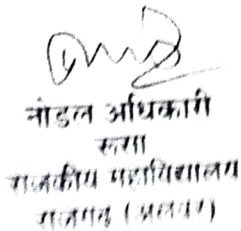 नोडल अधिकारी
रूसा
राजकीय महाविद्यालय
राजगढ़ (अलवर)